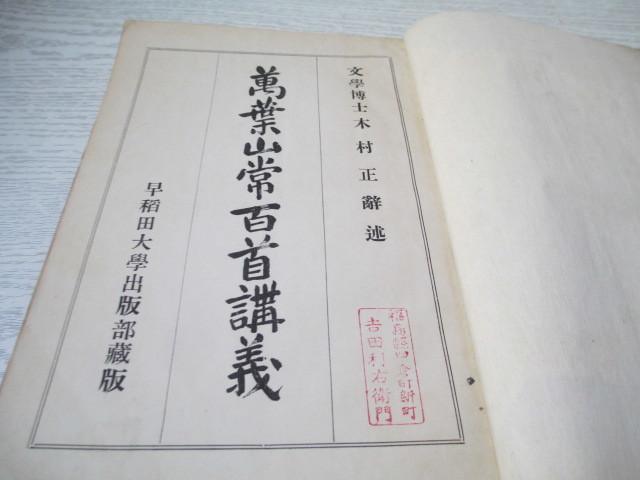 文學博士木村正辭述
萬葉山常百首講義
早稻田大學出版部藏版
吉田利右衛門